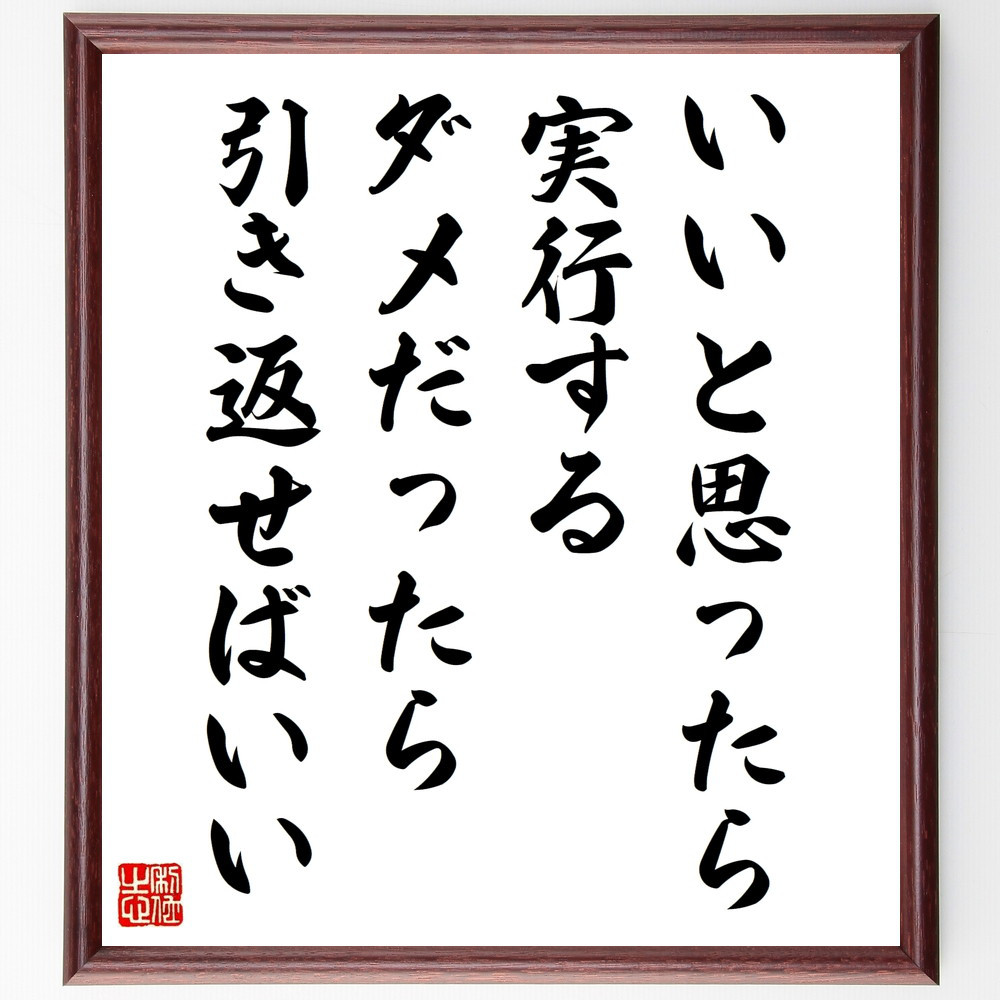 いいと思ったら
実行する
ダメだったら
引き返せばいい